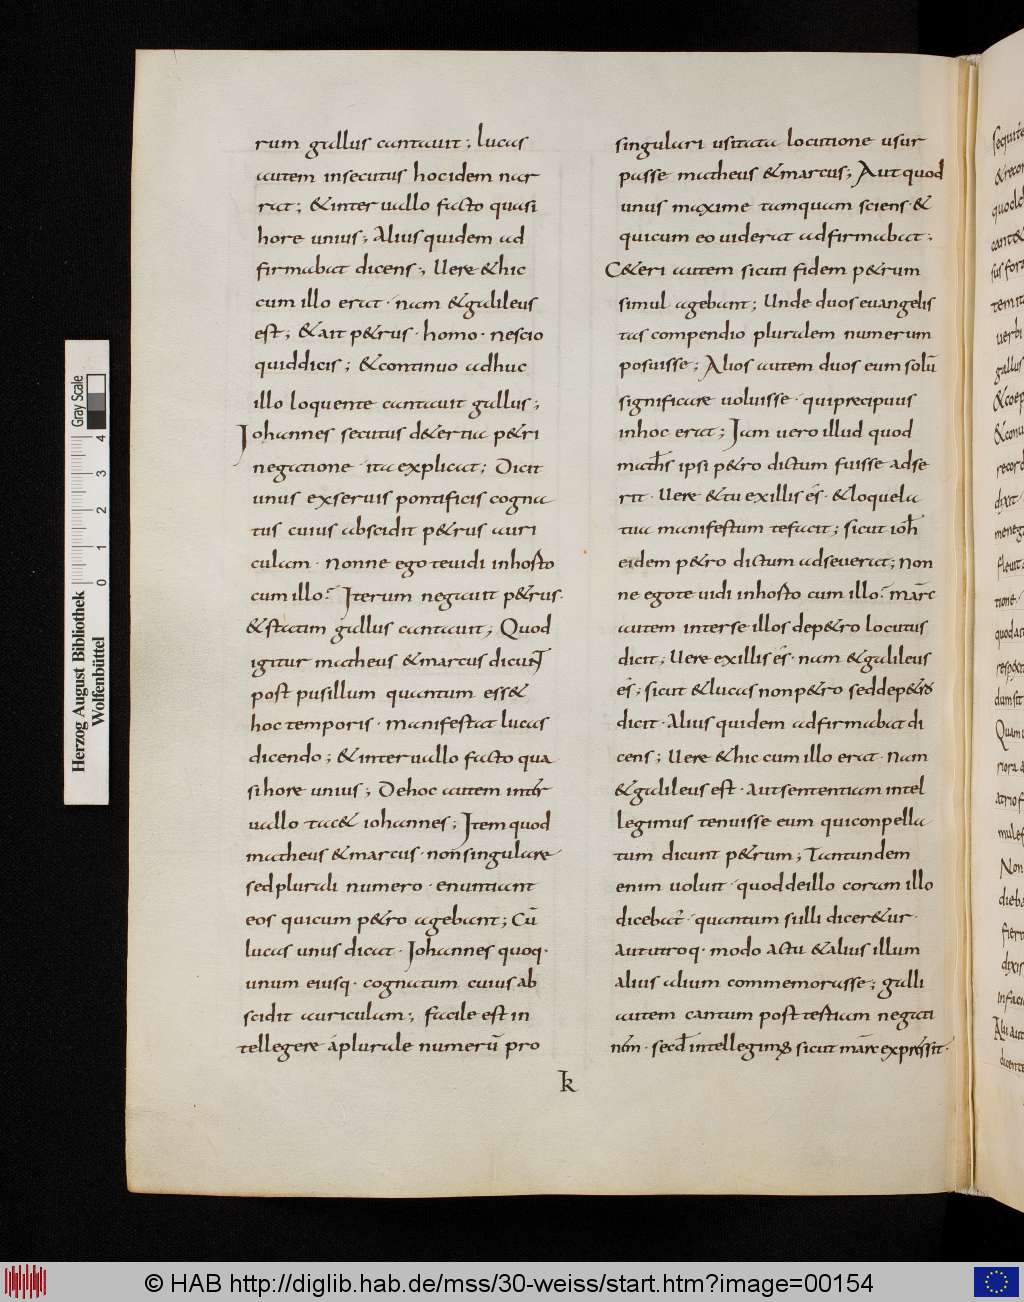 rum gallus cantauit; lucas
autem insecutus hocidem nar
rat; &inter uallo facto quasi
hore unius; Alius quidem ad
firmabat dicens; Uere &hic
cum illo erat · nam &galileus
est; &ait p&rus · homo · nescio
quiddicis; &continuo adhuc
illo loquente cantauit gallus;
Iohannes secutus d&ertia p&ri
negatione ita explicat; Dicit
unus exseruis pontificis cogna
tus cuius abscidit p&rus auri
culam · Nonne ego teuidi inhorto
cum illo? Iterum negauit p&rus ·
&statim gallus cantauit; Quod
igitur matheus &marcus dicunt
post pusillum quantum ess&
hoc temporis · manifestat lucas
dicendo; &inter uallo facto qua
sihore unius; Dehoc autem inter
uallo tac& iohannes; Item quod
matheus &marcus · nonsingulare
sedplurali numero · enuntiant
eos quicum p&ro agebant; Cū
lucas unus dicat · Iohannes quoq ·
unum eiusq · cognatum cuius ab
scidit auriculam; facile est in
tellegere áplurale numerū pro
singulari usitata locutione usur
passe matheus &marcus; Aut quod
unus maxime tamquam sciens · &
quicum eo uiderat adfirmabat;
C&eri autem sicuti fidem p&rum
simul agebant; Unde duos euangelis
tas compendio pluralem numerum
posuisse; Alios autem duos eum solū
significare uoluisse · quiprecipuus
inhoc erat; Iam uero illud quod
maths ipsi p&ro dictum fuisse adse
rit · Uere &tu exillis és · &loquela
tua manifestum tefacit; sicut ioh
eidem p&ro dictum adseuerat; Non
ne egote uidi inhorto cum illo? marc
autem interse illos dep&ro locutus
dicit; Uere exillis és · nam &galileus
és; sicut &lucas nonp&ro seddep&ro
dicit · Alius quidem adfirmabat di
cens; Uere &hic cum illo erat · Nam
&galileus est · autsententiam intel
legimus tenuisse eum quiconpella
tum dicunt p&rum; Tantundem
enim ualuit · quoddeillo coram illo
dicebat · quantum silli dicer&ur ·
Aututroq · modo actū &alius illum
alius alium commemorasse; galli
autem cantum post testiam negati
nem · secd intellegimus sicut marc expressit ·
k
Herzog August Bibliothek
Wolfenbüttel
0 1 2 3 4
Gray Scale
© HAB http://diglib.hab.de/mss/30-weiss/start.htm?image=00154